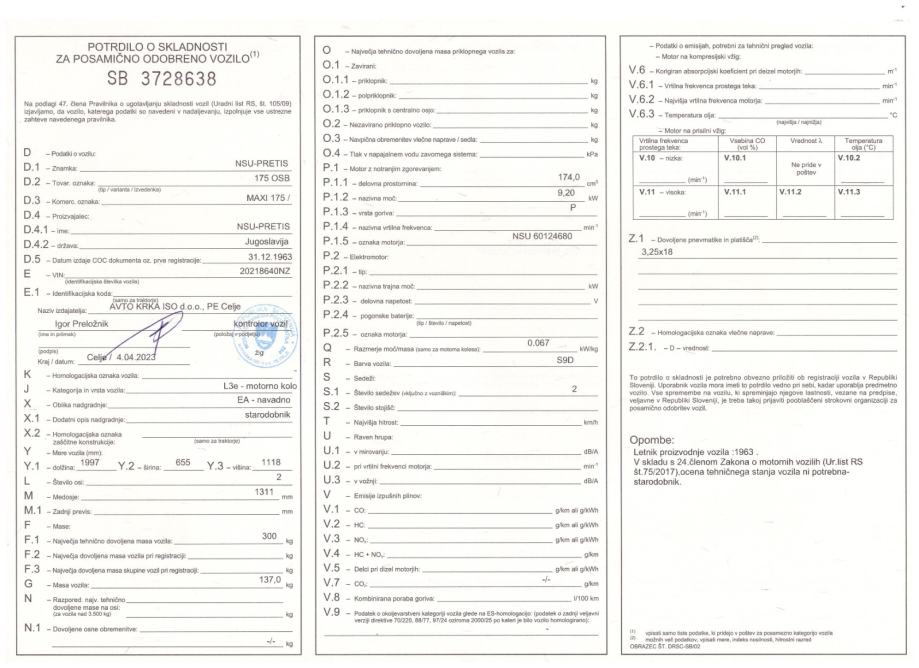 POTRDILO O SKLADNOSTI
ZA POSAMIČNO ODOBRENO VOZILO(1)
SB 3728638
Na podlagi 47. člena Pravilnika o ugotavljanju skladnosti vozil (Uradni list RS, št. 105/09)
izjavljamo, da vozilo, katerega podatki so navedeni v nadaljevanju, izpolnjuje vse ustrezne
zahteve navedenega pravilnika.
D – Podatki o vozilu:
D.1 – Znamka: NSU-PRETIS
D.2 – Tovar. oznaka: 175 OSB
(tip / varianta / izvedenka)
D.3 – Komerc. oznaka: MAXI 175 /
D.4 – Proizvajalec:
D.4.1 – ime: NSU-PRETIS
D.4.2 – država: Jugoslavija
D.5 – Datum izdaje COC dokumenta oz. prve registracije: 31.12.1963
E – VIN: 20218640NZ
(identifikacijska številka vozila)
E.1 – Identifikacijska koda:
(samo za traktorje)
Naziv izdajatelja: AVTO KRKA ISO d.o.o., PE Celje
Igor Preložnik kontrolor vozil
(ime in priimek) (položaj v podjetju)
(podpis) žig
Kraj / datum: Celje / 4.04.2023
K – Homologacijska oznaka vozila:
J – Kategorija in vrsta vozila: L3e - motorno kolo
X – Oblika nadgradnje: EA - navadno
X.1 – Dodatni opis nadgradnje: starodobnik
X.2 – Homologacijska oznaka
zaščitne konstrukcije: (samo za traktorje)
Y – Mere vozila (mm):
Y.1 – dolžina: 1997 Y.2 – širina: 655 Y.3 – višina: 1118
L – Število osi: 2
M – Medosje: 1311 mm
M.1 – Zadnji previs: mm
F – Mase:
F.1 – Največja tehnično dovoljena masa vozila: 300 kg
F.2 – Največja dovoljena masa vozila pri registraciji: kg
F.3 – Največja dovoljena masa skupine vozil pri registraciji: kg
G – Masa vozila: 137,0 kg
N – Razpored. najv. tehnično
dovoljene mase na osi:
(za vozila nad 3.500 kg) kg
N.1 – Dovoljene osne obremenitve:
-/- kg
O – Največja tehnično dovoljena masa priklopnega vozila za:
O.1 – Zavirani:
O.1.1 – priklopnik: kg
O.1.2 – polpriklopnik: kg
O.1.3 – priklopnik s centralno osjo: kg
O.2 – Nezavirano priklopno vozilo: kg
O.3 – Navpična obremenitev vlečne naprave / sedla: kg
O.4 – Tlak v napajalnem vodu zavornega sistema: kPa
P.1 – Motor z notranjim zgorevanjem:
P.1.1 – delovna prostornina: 174,0 cm³
P.1.2 – nazivna moč: 9,20 kW
P.1.3 – vrsta goriva: P
P.1.4 – nazivna vrtilna frekvenca: min⁻¹
P.1.5 – oznaka motorja: NSU 60124680
P.2 – Elektromotor:
P.2.1 – tip:
P.2.2 – nazivna trajna moč: kW
P.2.3 – delovna napetost: V
P.2.4 – pogonske baterije:
(tip / število / napetost)
P.2.5 – oznaka motorja:
Q – Razmerje moč/masa (samo za motorna kolesa): 0.067 kW/kg
R – Barva vozila: S9D
S – Sedeži:
S.1 – Število sedežev (vključno z voznikim): 2
S.2 – Število stojišč:
T – Najvišja hitrost: km/h
U – Raven hrupa:
U.1 – v mirovanju: dB/A
U.2 – pri vrtilni frekvenci motorja: min⁻¹
U.3 – v vožnji: dB/A
V – Emisije izpušnih plinov:
V.1 – CO: g/km ali g/kWh
V.2 – HC: g/km ali g/kWh
V.3 – NOx: g/km ali g/kWh
V.4 – HC + NOx: g/km
V.5 – Delci pri dizel motorjih: g/km ali g/kWh
V.7 – CO₂: -/- g/km
V.8 – Kombinirana poraba goriva: l/100 km
V.9 – Podatek o okoljevarstveni kategoriji vozila glede na ES-homologacijo: (podatek o zadnji veljavni
verziji direktive 70/220, 88/77, 97/24 oziroma 2000/25 po kateri je bilo vozilo homologirano):
-
– Podatki o emisijah, potrebni za tehnični pregled vozila:
– Motor na kompresijski vžig:
V.6 – Korigiran absorpcijski koeficient pri deizel motorjih: m⁻¹
V.6.1 – Vrtilna frekvenca prostega teka: min⁻¹
V.6.2 – Najvišja vrtilna frekvenca motorja: min⁻¹
V.6.3 – Temperatura olja: °C
(najvišja / najnižja)
– Motor na prisilni vžig:
Vrtilna frekvenca prostega teka: Vsebina CO (vol %) Vrednost λ Temperatura olja (°C)
V.10 – nizka: (min⁻¹) V.10.1 Ne pride v poštev V.10.2
V.11 – visoka: (min⁻¹) V.11.1 V.11.2 V.11.3
Z.1 – Dovoljene pnevmatike in platišča(2):
3,25x18
Z.2 – Homologacijska oznaka vlečne naprave:
Z.2.1. – D – vrednost:
To potrdilo o skladnosti je potrebno obvezno priložiti ob registraciji vozila v Republiki
Sloveniji. Uporabnik vozila mora imeti to potrdilo vedno pri sebi, kadar uporablja predmetno
vozilo. Vse spremembe na vozilu, ki spreminjajo njegove lastnosti, vezane na predpise,
veljavne v Republiki Sloveniji, je treba takoj prijaviti pooblaščeni strokovni organizaciji za
posamično odobritev vozil.
Opombe:
Letnik proizvodnje vozila :1963 .
V skladu s 24.členom Zakona o motornih vozilih (Ur.list RS
št.75/2017),ocena tehničnega stanja vozila ni potrebna-
starodobnik.
(1) vpisati samo tiste podatke, ki pridejo v poštev za posamezno kategorijo vozila
(2) možnih več podatkov, vpisati mere, indeks nosilnosti, hitrostni razred
OBRAZEC ŠT. DRSC-SB/02